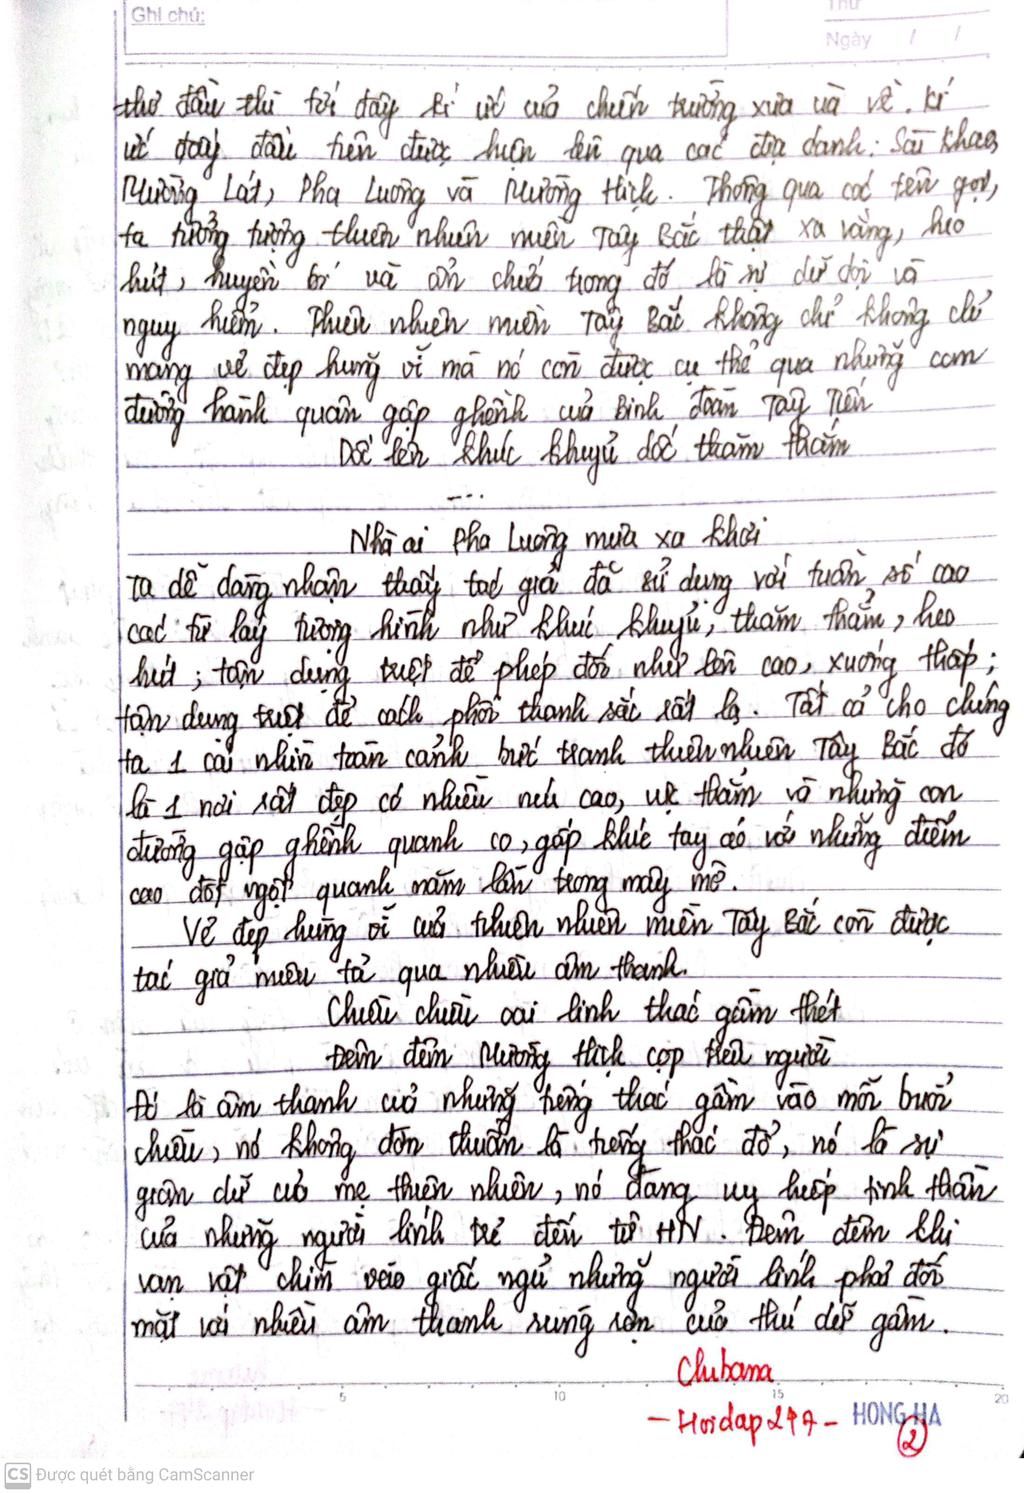 Ghi chú:
Thứ
Ngày / /
thơ đầu thì tới đây kí ức của chiến trường xưa ùa về. Kí
ức đoạn đầu tiên được hiện lên qua các địa danh: Sài Khao,
Mường Lát, Pha Luông và Mường Hịch. Thông qua các tên gọi,
ta tưởng tượng thiên nhiên miền Tây Bắc thật xa vắng, heo
hút, huyền bí và ẩn chứa trong đó là sự dữ dội và
nguy hiểm. Thiên nhiên miền Tây Bắc không chỉ không chỉ
mang vẻ đẹp hùng vĩ mà nó còn được cụ thể qua những con
đường hành quân gập ghềnh của binh đoàn Tây Tiến
Dốc lên khúc khuỷu dốc thăm thẳm
...
Nhà ai Pha Luông mưa xa khơi
Ta dễ dàng nhận thấy tác giả đã sử dụng với tuần số cao
các từ láy tượng hình như khúc khuỷu, thăm thẳm, heo
hút; tận dụng triệt để phép đối như lên cao, xuống thấp;
tận dụng triệt để cách phối thanh sắc rất lạ. Tất cả cho chúng
ta 1 cái nhìn toàn cảnh bức tranh thiên nhiên Tây Bắc đó
là 1 nơi rất đẹp có nhiều núi cao, vực thẳm và những con
đường gập ghềnh quanh co, gấp khúc tay áo với những điểm
cao đột ngột quanh năm lẩn trong mây mờ.
Vẻ đẹp hùng vĩ của thiên nhiên miền Tây Bắc còn được
tác giả miêu tả qua nhiều âm thanh.
Chiều chiều oai linh thác gầm thét
Đêm đêm Mường Hịch cọp trêu người
Đó là âm thanh của những tiếng thác gầm vào mỗi buổi
chiều, nó không đơn thuần là tiếng thác đổ, nó là sự
giận dữ của mẹ thiên nhiên, nó đang uy hiếp tinh thần
của những người lính trẻ đến từ HN. Đêm đêm khi
vạn vật chìm vào giấc ngủ những người lính phải đối
mặt với nhiều âm thanh rùng rợn của thú dữ gầm.
Chibana
- Hoidap247 -
5 10 15 20
HONG HA
2
CS Được quét bằng CamScanner